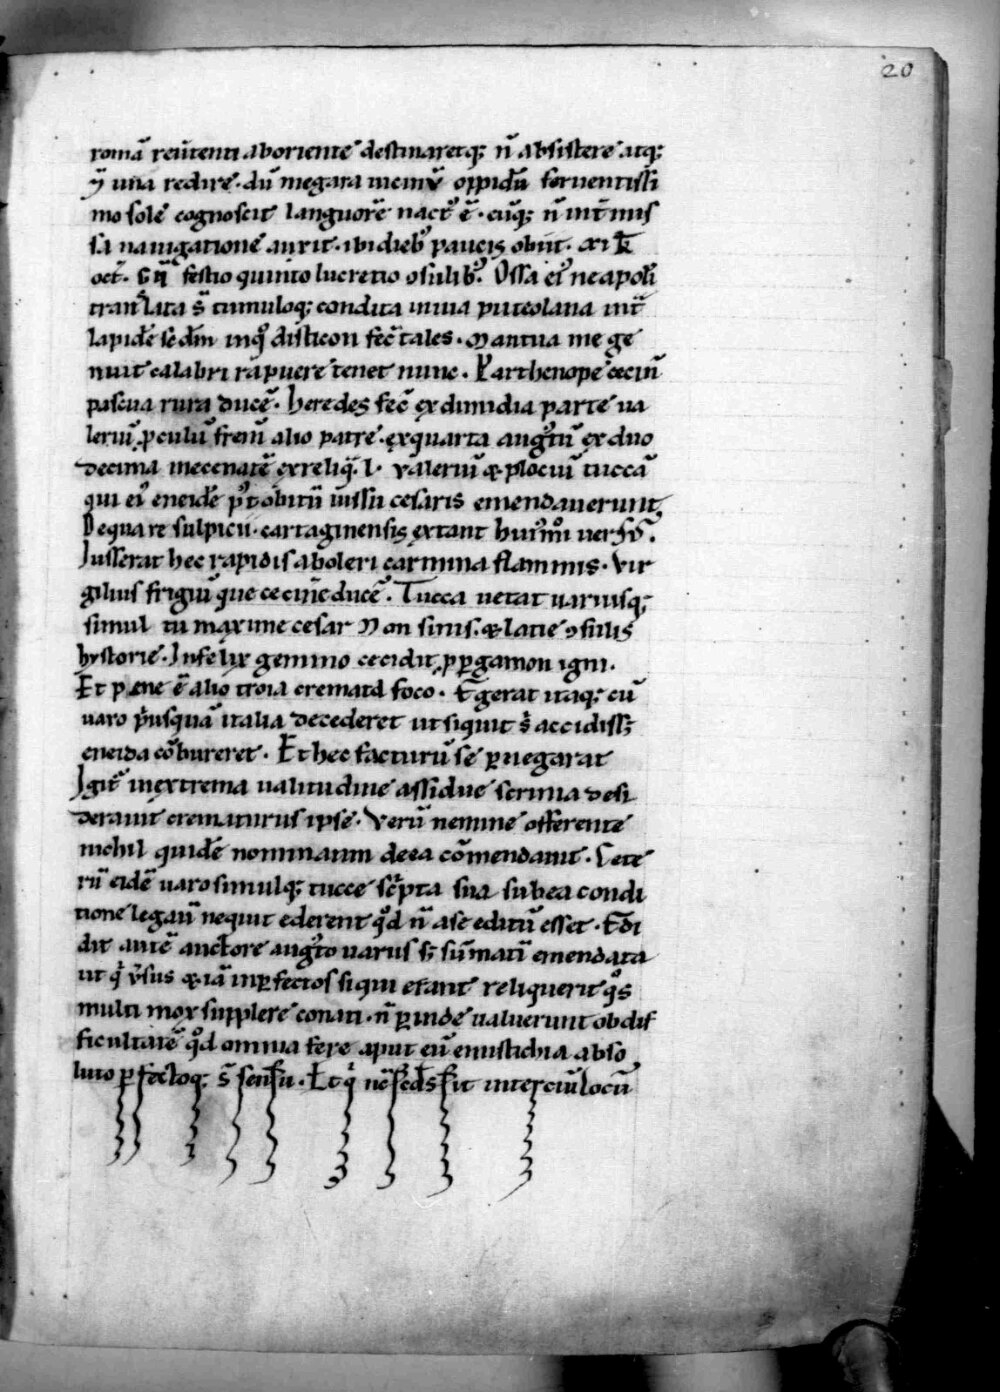 20
romā reūtenti aboriente destinaretq; n̄ absistere atq;
ȳ una redire. dū megara uicinū oppidū feruentissi
mo sole cognoscit languorē nact᷒ ē. eūq; n̄ int̄mis
sa nauigatione auxit. ibi dieb᷒ paucis obiit. xi k̄
oct̄. Gn̄ sestio quinto lucretio ɔsulib᷒. Ossa ei᷒ neapolī
translata s̄ tumuloq; condita in uia puteolana int̄
lapidē sēdm̄ in q᷒ disticon fec̄ tales. Mantua me ge
nuit calabri rapuere tenet nunc. Parthenope cecin̄
pascua rura ducē. heredes fec̄ ex dimidia parte ua
leriū proculū frem̄ alio patre. ex quarta aug᷒tū ex duo
decima mecenatē ex reliq̄. l. ualeriū & plociū tuccā
qui ei᷒ eneidē p᷒t obitū iussu cesaris emendauerunt.
De qua re sulpicii. cartaginensis extant hui᷒m̊i uers᷒.
Iusserat hec rapidis aboleri carmina flammis. Vir
gilius frigiū que cecinit ducē. Tucca uetat uariusq;
simul tu maxime cesar Non sinis. & latie ɔsulis
hystorie. Infelix gemino cecidit pergamon igni.
Et pene ē alio troia cremata foco. Egerat itaq; cū
uaro priusquā italia decederet ut siquit s̄ accidiss;
eneida cōbureret. Et hec facturū se pernegarat
Igit̄ in extrema ualitudine assidue scrinia desi
derauit crematurus ipse. Verū nemine offerente
nichil quidē nominatim de ea cōmendauit. Cete
rū eidē uaro simulq; tucce scripta sua sub ea condi
tione legauit nequit ederent qd̄ n̄ a se editū esset. Edi
dit autē auctore aug᷒to uarus s; sūmatī emendata
ut qi uersus & iā inperfectos siqui erant reliquerit q᷒s
multi mox supplere conati. n̄ perinde ualuerunt ob dif
ficultatē qd̄ omnia fere aput eū emistichia abso
luto perfectoq; s̄ sensu.